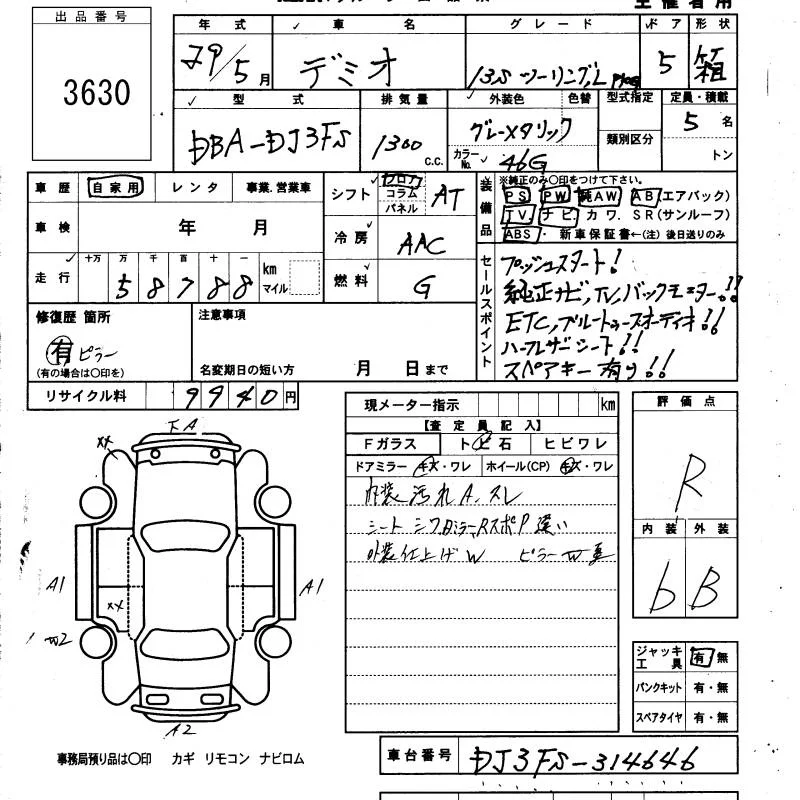 出品番号
3630
年式 車名 グレード ドア 形状
29/5月 デミオ 13S ツーリングL Pkg 5 箱
型式 排気量 外装色 色替 型式指定 定員・積載
DBA-DJ3FS 1300 C.C. グレーメタリック 類別区分 5名
カラーNo. 46G トン
車歴 自家用 レンタ 事業.営業車
車検 年 月
走行 十万 万 千 百 十 一
58788 km マイル
シフト フロア コラム パネル AT
冷房 AAC
燃料 G
装備品 ※純正のみ〇印をつけて下さい。
PS PW 純AW AB(エアバック)
TV ナビ カワ. SR(サンルーフ)
ABS・ 新車保証書←(注) 後日送りのみ
セールスポイント
プッシュスタート!
純正ナビ,TV,バックモニター!!
ETC,ブルートゥースオーディオ!!
ハーフレザーシート!!
スペアキー有り!!
修復歴 箇所
有 ピラー
(有の場合は〇印を)
注意事項
名変期日の短い方 月 日まで
リサイクル料 9940円
現メーター指示 km
【査定員記入】
Fガラス トビ石 ヒビワレ
ドアミラー キズ・ワレ ホイール(CP) キズ・ワレ
内装汚れA、スレ
シート シワ
外装仕上げW ピラーW
評価点
R
内装 外装
b B
ジャッキ工具 有・無
パンクキット 有・無
スペアタイヤ 有・無
下A
XX
A1
A1
XX
W2
A2
事務局預り品は〇印 カギ リモコン ナビロム
車台番号 DJ3FS-314646